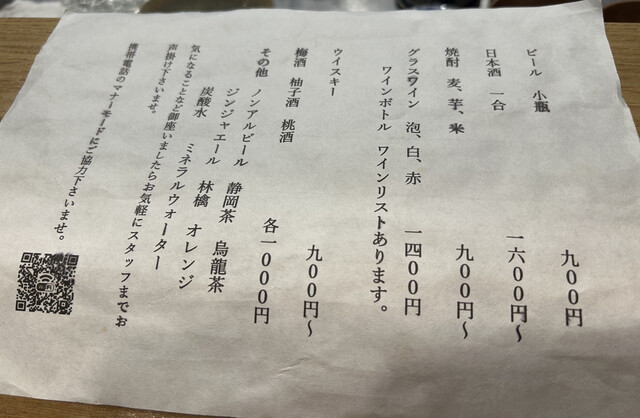 ビール　小瓶　九00円
日本酒　一合　一六00円〜
焼酎　麦、芋、米　九00円〜
グラスワイン　泡、白、赤　一四00円
ワインボトル　ワインリストあります。
ウイスキー　九00円〜
梅酒　柚子酒　桃酒
その他　ノンアルビール　静岡茶　烏龍茶　各一000円
ジンジャエール　林檎　オレンジ
炭酸水　ミネラルウォーター
気になることなど御座いましたらお気軽にスタッフまでお
声掛け下さいませ。
携帯電話のマナーモードにご協力下さいませ。